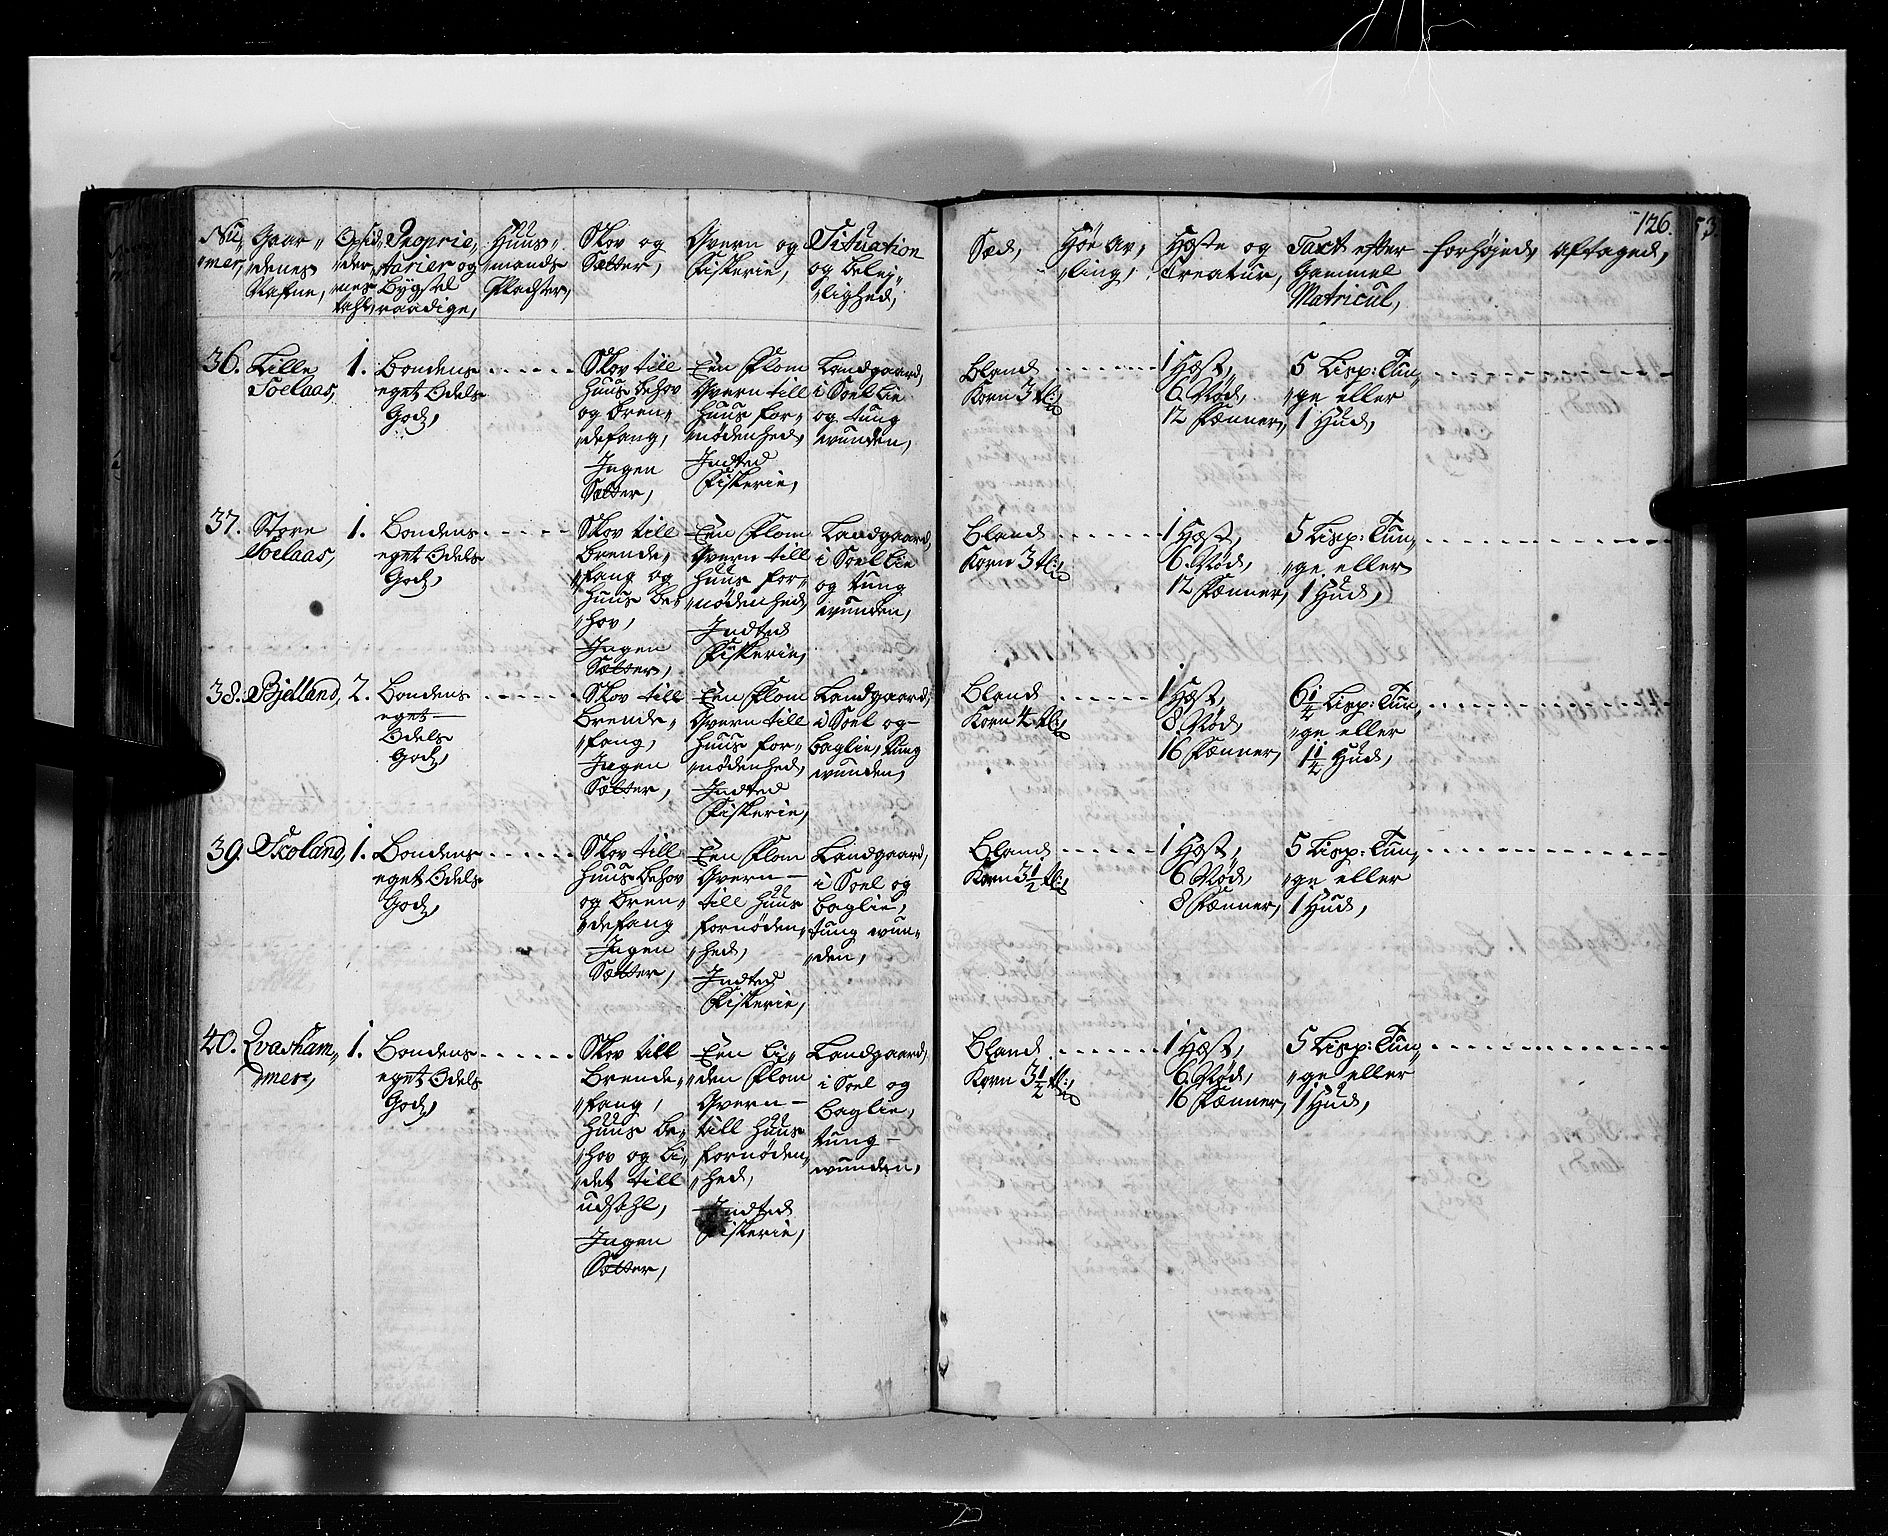 126.
53
Nu„
mer,
Gaar„
denes
Nafne,
Opsid„
der„
nes
tahl,
Proprie„
tarier og
bygsel
raadige,
Huus„
mands
Pladser,
Skov og
Sætter,
Qvern og
Fiskerie,
Situation
og belej„
lighed,
Sæd,
Høe Av„
ling,
Hæste og
Creatur,
Taxt efter
Gammel
Matricul,
forhøjed,
Aftaged,
36.
Lille
Soelaas,
1.
Bondens
eget Odels
God,
Skov till
huus behov
og bren„
defang,
Ingen
Sætter,
Een Flom
Qvern till
huus for„
nødenhed,
Indted
Fiskerie,
Landgaard,
i Soel lie
og tung
wunden,
Bland
Korn 3 tl:
1 Hæst,
6. Nød,
12 Fænner,
5 Lisp: Tun„
ge eller
1 Hud,
37.
Store
Soelaas,
1.
Bondens
eget Odels
God,
Skov till
brende„
fang og
huus be„
hov,
Ingen
Sætter,
Een Flom
Qvern till
huus for„
nødenhed,
Indted
Fiskerie,
Landgaard,
i Soel lie
og tung
wunden,
Bland
Korn 3 tl:
1 Hæst,
6. Nød,
12 Fænner,
5 Lisp: Tun„
ge eller
1 Hud,
38.
Bjelland,
2.
Bondens
eget
Odels
God,
Skov till
brende„
fang,
Ingen
Sætter,
Een Flom
Qvern till
huus for„
nødenhed,
Indted
Fiskerie,
Landgaard,
i Soel og
baglie, tung
wunden,
Bland
Korn 4 tl:
1 Hæst,
8. Nød,
16 Fænner,
6 1/4 Lisp: Tun„
ge eller
1 1/4 Hud,
39.
Skoland,
1.
Bondens
eget Odels
God,
Skov till
huus behov
og bren„
defang
Ingen
Sætter,
Een Flom
Qvern
till huus
fornøden„
hed,
Indted
Fiskerie,
Landgaard,
i Soel og
baglie,
tung wun„
den,
Bland
Korn 3 1/2 tl:
1 Hæst,
6 Nød,
8 Fænner,
5 Lisp: Tun„
ge eller
1 Hud,
40.
Qvasham„
mer,
1.
Bondens
eget Odels
God,
Skov till
brende„
fang,
huus be„
hov og li„
det till
udsahl,
Ingen
Sætter,
Een li„
den Flom
Qvern
till huus
fornøden„
hed,
Indted
Fiskerie,
Landgaard,
i Soel og
baglie,
tung
wunden,
Bland
Korn 3 1/2 tl:
1 Hæst,
6. Nød,
16 Fænner,
5 Lisp: Tun„
ge eller
1 Hud,